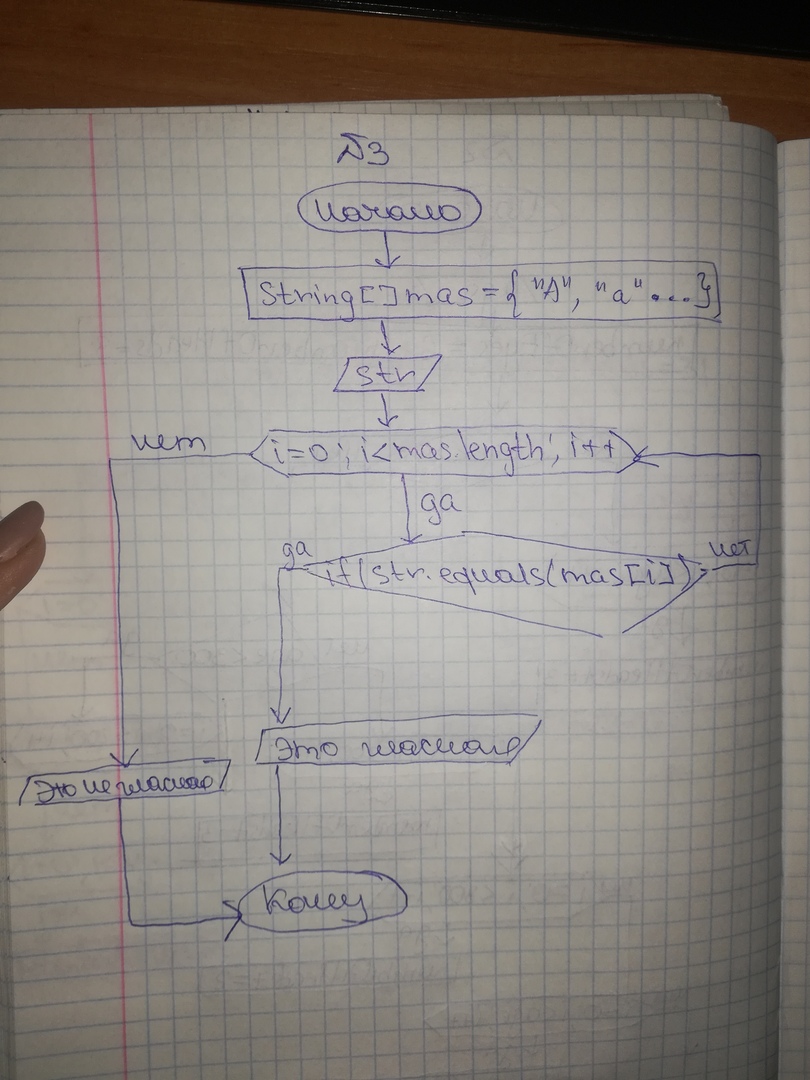 №3
Начало
String[] mas = { "A", "a" ....}
str
нет
i=0; i<mas.length; i++
да
да
if(str.equals(mas[i])
нет
Это гласная
Это не гласная
Конец